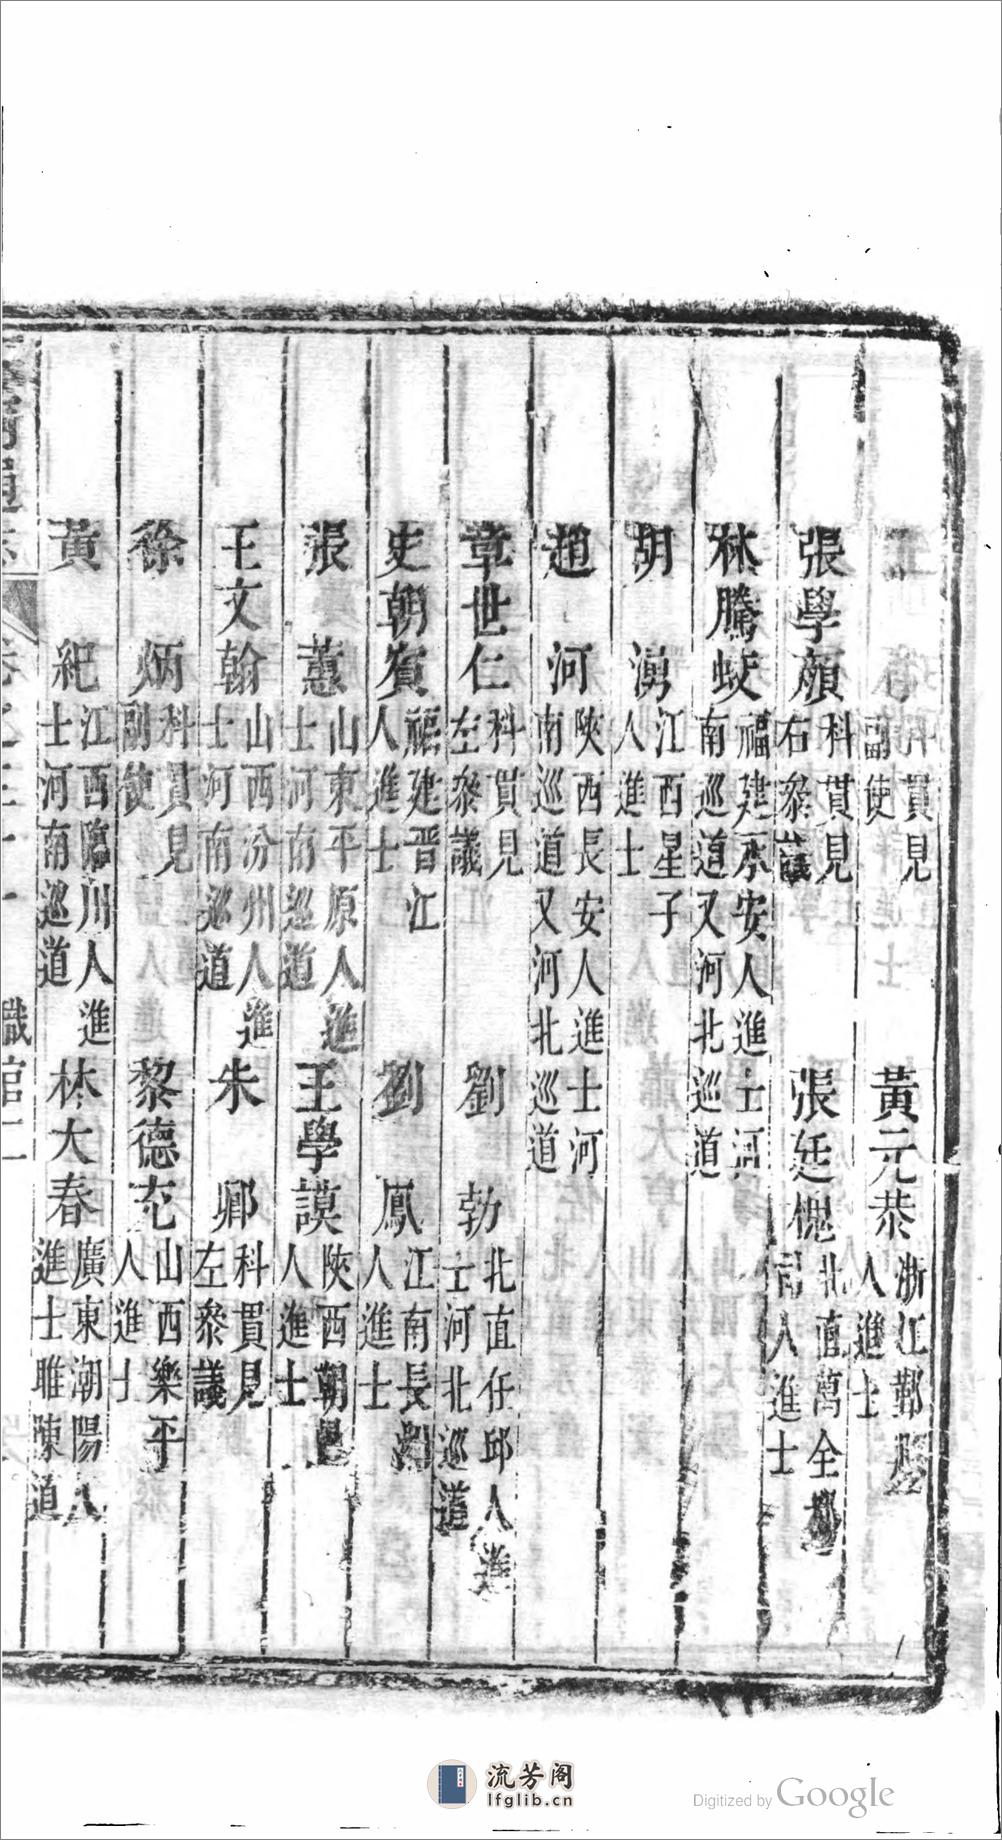 副使貫見 黃元恭浙江鄞縣人進士
張學顏科貫見右叅議 張廷槐北直萬全都司人進士
林騰蛟福建永安人進士河南巡道又河北巡道
胡湧江西星子人進士
趙河陝西長安人進士河南巡道又河北巡道
章世仁科貫見左叅議 劉勃北直任邱人進士河北巡道
史朝賓福建晉江人進士 劉鳳江南長洲人進士
張蕙山東平原人進士河南巡道 王學謨陝西朝邑人進士
王文翰山西汾州人進士河南巡道 朱卿科貫見左叅議
徐炳科貫見副使 黎德充山西樂平人進士
黃紀江西臨川人進士河南巡道 林大春廣東潮陽人進士睢陳道
職官二
流芳阁
lfglib.cn
Digitized by Google